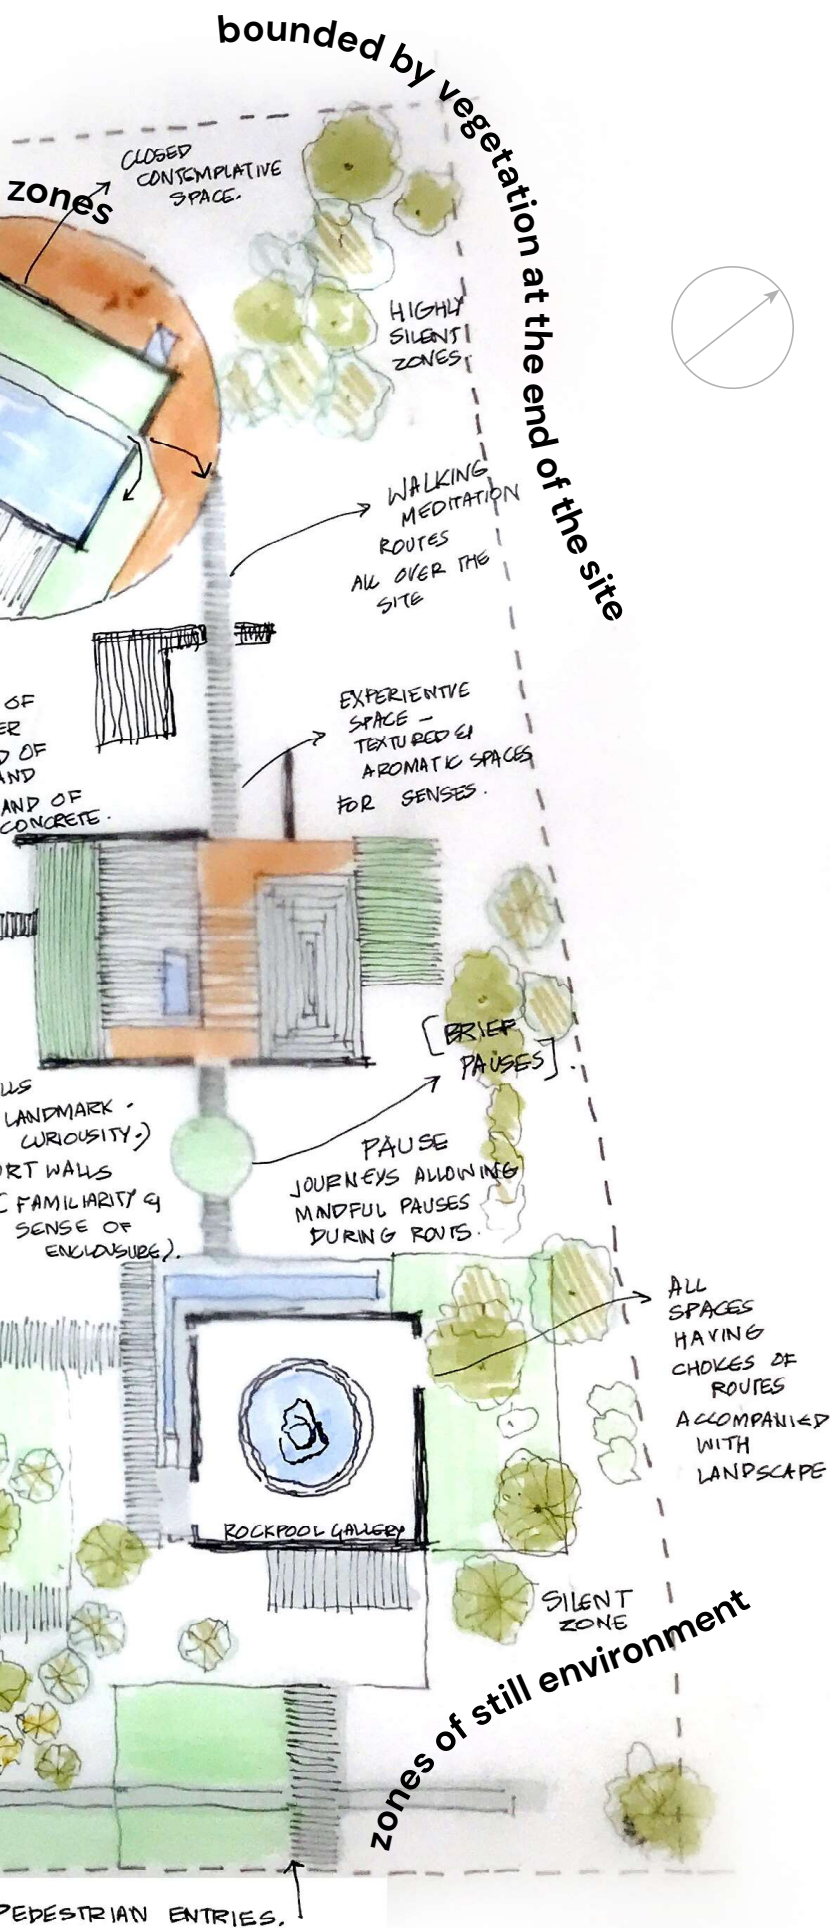 bounded by vegetation at the end of the site
CLOSED
CONTEMPLATIVE
SPACE.
zones
HIGHLY
SILENT
ZONES
WALKING
MEDITATION
ROUTES
ALL OVER THE
SITE
EXPERIENTIVE
SPACE –
TEXTURED &
AROMATIC SPACES
FOR SENSES.
OF
OF
AND
AND OF
CONCRETE.
[BRIEF
PAUSES]
LANDMARK -
CURIOUSITY.)
WALLS
FAMILIARITY &
SENSE OF
ENCLOUSURE).
PAUSE
JOURNEYS ALLOWING
MINDFUL PAUSES
DURING ROUTS.
ALL
SPACES
HAVING
CHOICES OF
ROUTES
ACCOMPANIED
WITH
LANDSCAPE
ROCKPOOL GALLERY
SILENT
ZONE
zones of still environment
PEDESTRIAN ENTRIES.